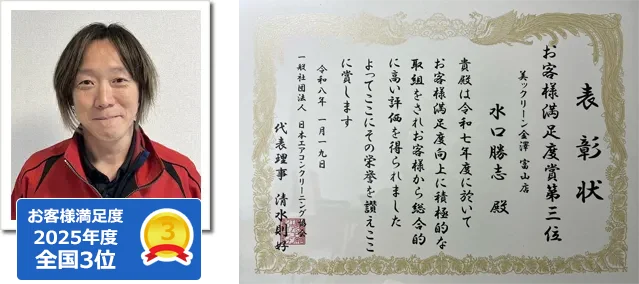 お客様満足度
2025年度
全国3位
3
表彰状
お客様満足度賞第三位
美ックリーン金澤 富山店
水口勝志 殿
貴殿は令和七年度に於いて
お客様満足度向上に積極的な
取組をされお客様から総合的
に高い評価を得られました
よってここにその栄誉を讃えここ
に賞します
令和八年 一月一九日
一般社団法人 日本エアコンクリーニング協会
代表理事 清水則好